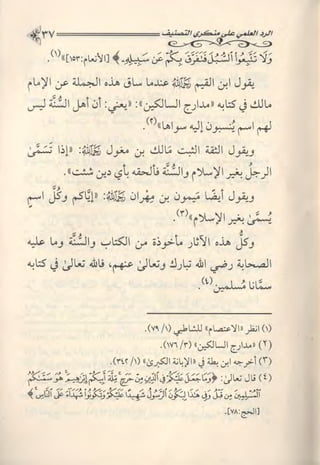 الرد العلمي على منكري التصنيف
٣٧
وَلَا تَتَّبِعُوا السُّبُلَ فَتَفَرَّقَ بِكُمْ عَن سَبِيلِهِ﴾ [الأنعام:١٥٣]»(١).
يقول ابن القيم ﵀ عندما ساق هذه الجملة عن الإمام
مالك في كتابه «مدارج السالكين»: «يعني: أن أهل السُّنَّة ليس
لهم اسم يُنسبون إليه سواها»(٢).
ويقول الثقة الثبت مالك بن مغول ﵀: «إذا تَسَمَّى
الرجلُ بغير الإسلام والسُّنَّة فألحقه بأي دين شئت».
ويقول أيضًا ميمون بن مهران ﵀: «إياكم وكُلَّ اسم
يُسمَّى بغير الإسلام»(٣).
وكلُّ هذه الآثار مأخوذة من الكتاب والسُّنَّة وما عليه
الصحابة رضي الله تبارك وتعالى عنهم، فالله تعالى في كتابه
سمَّانا مُسلمين(٤).
(١) انظر «الاعتصام» للشاطبي (١/ ٧٩).
(٢) «مدارج السالكين» (٣/ ١٧٦).
(٣) أخرجه ابن بطة في «الإبانة الكبرى» (١/ ٣٤٢).
(٤) قال تعالى: ﴿وَمَا جَعَلَ عَلَيْكُمْ فِي الدِّينِ مِنْ حَرَجٍ مِّلَّةَ أَبِيكُمْ إِبْرَاهِيمَ هُوَ سَمَّاكُمُ
الْمُسْلِمِينَ مِن قَبْلُ وَفِي هَذَا لِيَكُونَ الرَّسُولُ شَهِيدًا عَلَيْكُمْ وَتَكُونُوا شُهَدَاءَ عَلَى النَّاسِ﴾
[الحج:٧٨].